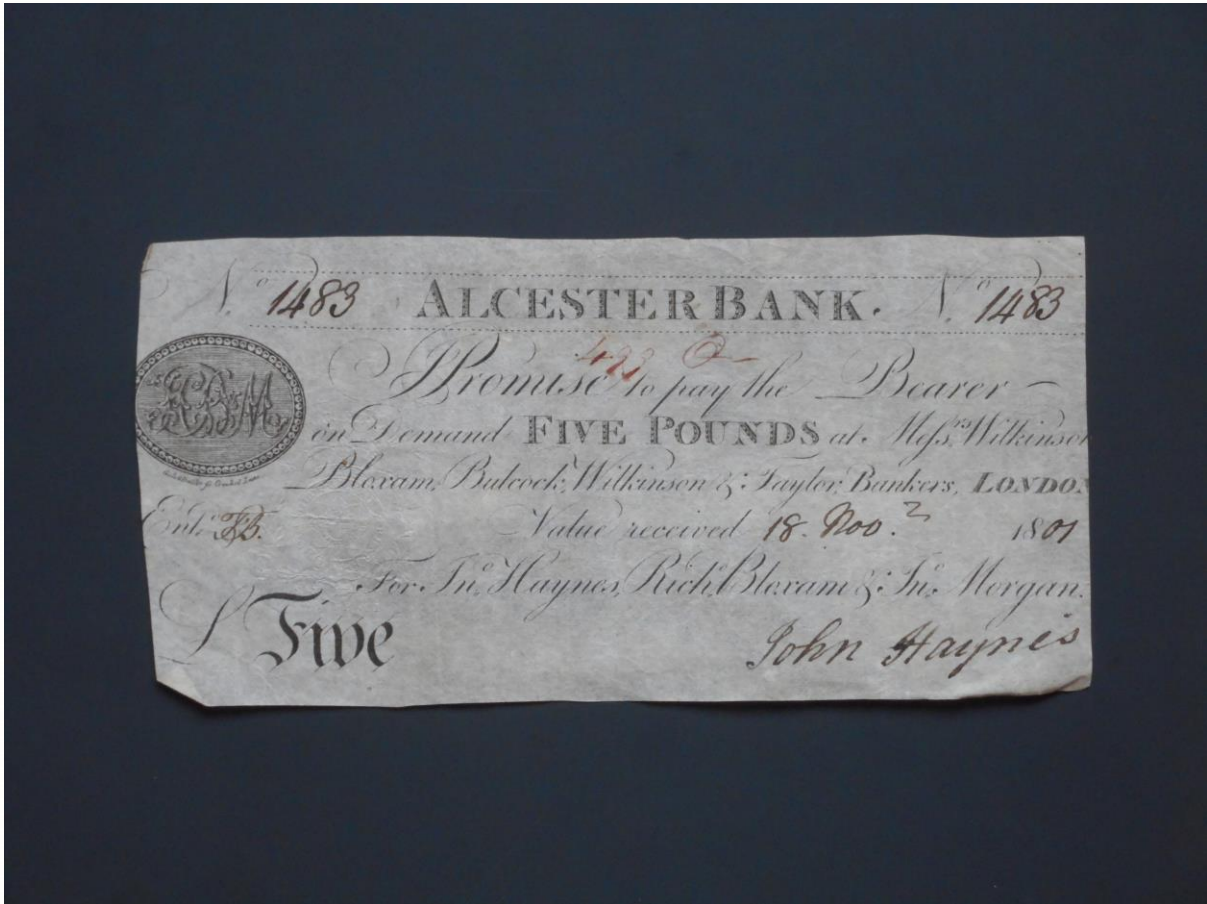 No. 1483 ALCESTER BANK. No. 1483
I Promise to pay the Bearer
on Demand FIVE POUNDS at Messrs. Wilkinson
Bloxam, Bulcock, Wilkinson & Taylor, Bankers, LONDON
Entd. Value received 18. Nov. 1801
For Jno. Haynes, Richd. Bloxam & Jno. Morgan.
£ Five John Haynes